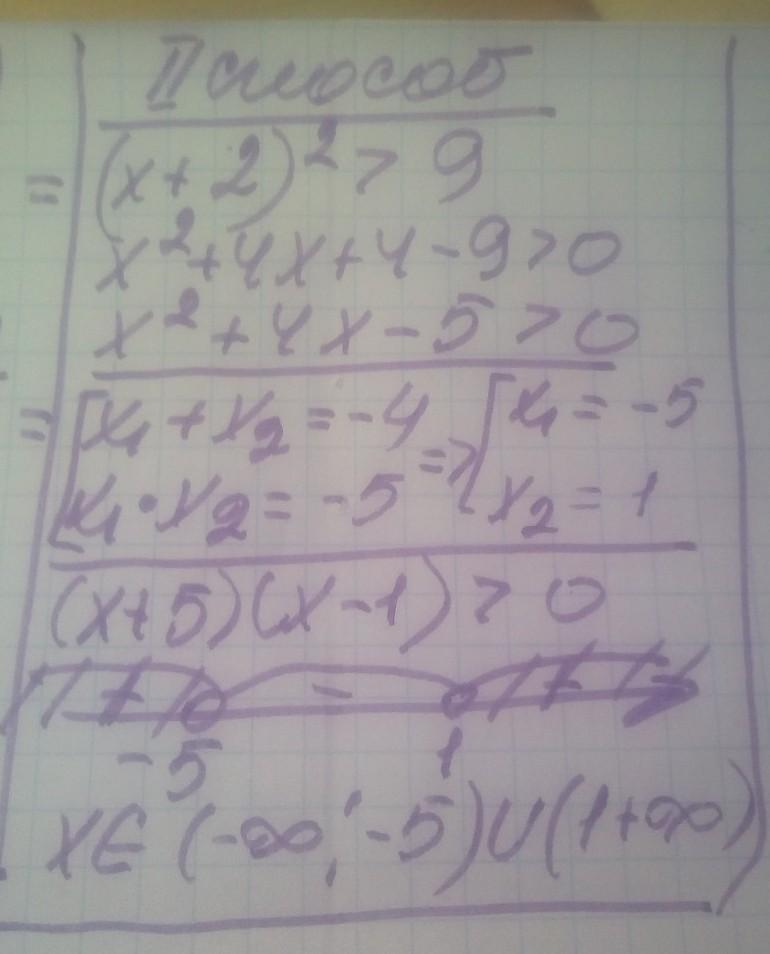 II способ
= (x+2)² > 9
x²+4x+4-9>0
x²+4x-5>0
= [x₁+x₂=-4 => [x₁=-5
x₁·x₂=-5 x₂=1
(x+5)(x-1)>0
+ - +
-5 1
x∈(-∞;-5)∪(1+∞)